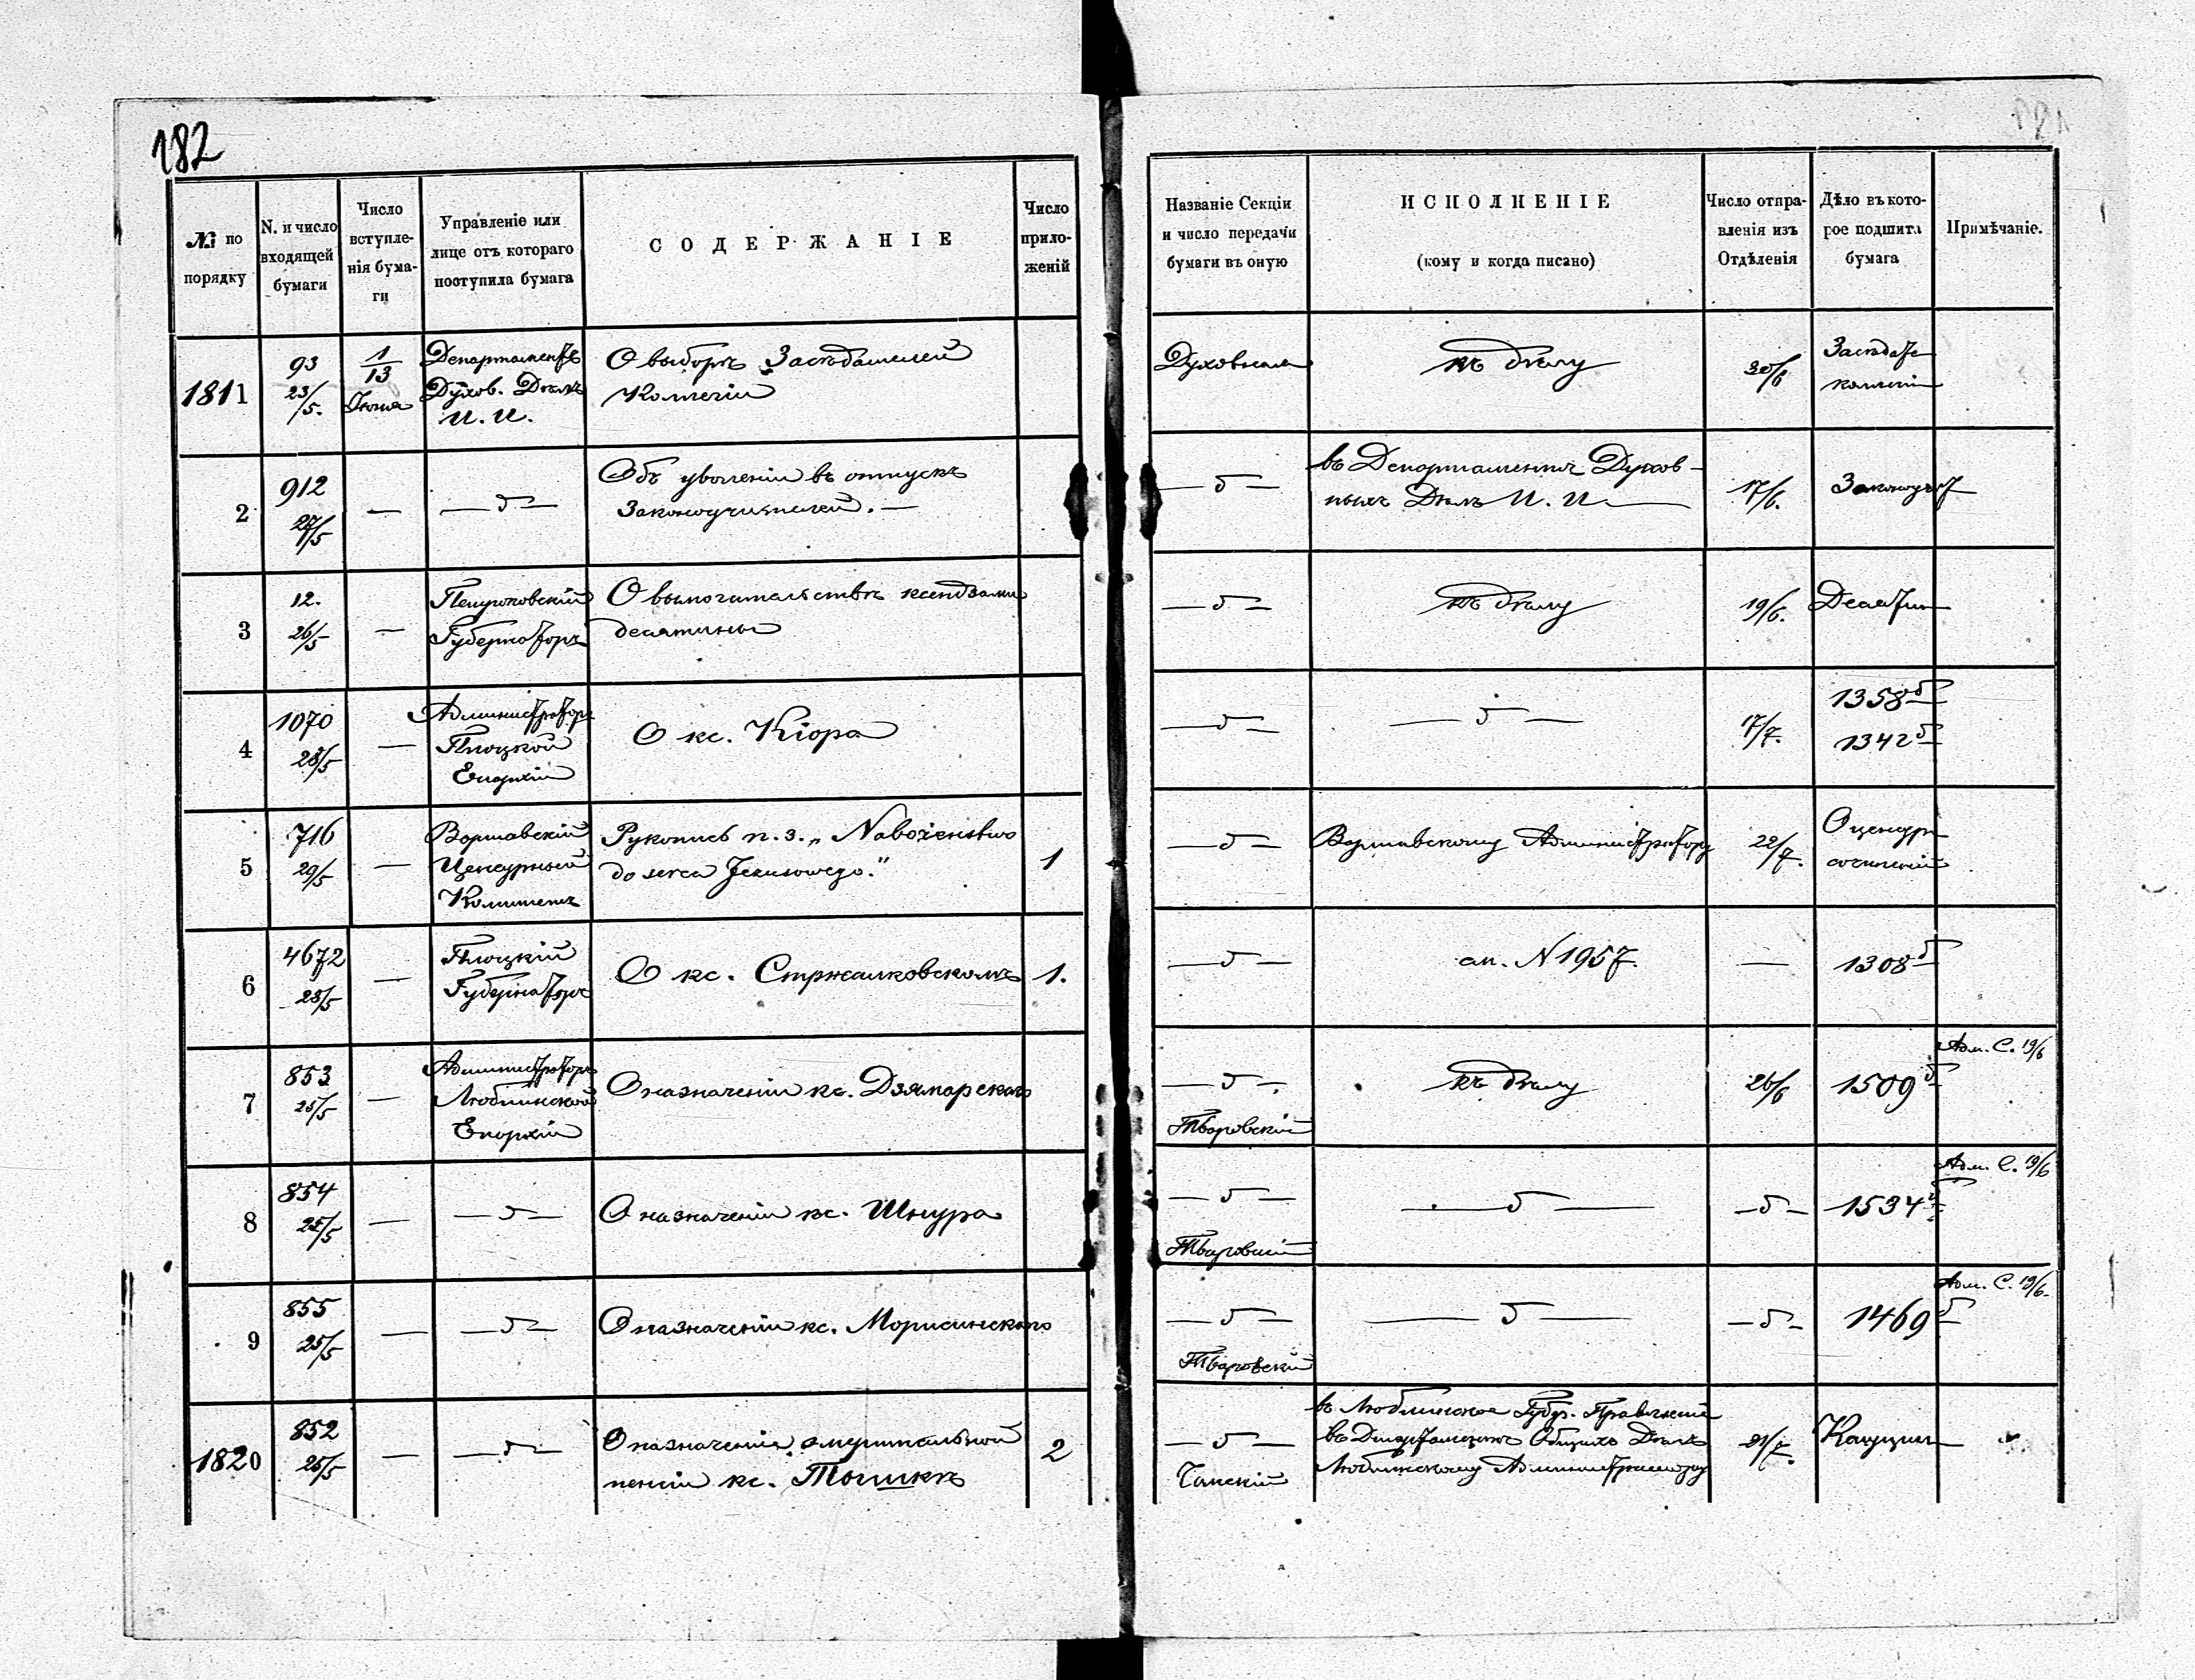 182
№ по порядку
N. и число входящей бумаги
Число вступле-нія бума-ги
Управленіе или лице отъ котораго поступила бумага
СОДЕРЖАНІЕ
Число прило-женій
Названіе Секціи и число передачи бумаги въ оную
ИСПОЛНЕНІЕ
(кому и когда писано)
Число отпра-вленія изъ Отдѣленія
Дѣло въ кото-рое подшита бумага
Примѣчаніе.
1811
93
23/5.
1/13 Іюня
Департаментъ
Духов. Дѣлъ
И. И.
О выборѣ Засѣдателей
Коллегіи
Духовная
къ дѣлу
30/6
Засѣдате
коллегіи
2
912
27/5
—
—〃—
Объ уволеніи въ отпускъ
Законоучителей. —
—〃—
въ Департаментъ Духов-
ныхъ Дѣлъ И. И.
17/6.
Законоуч
3
12.
26/5
—
Петроковскій
Губернаторъ
О вымогательствѣ ксендзами
десятины
—〃—
къ дѣлу
19/6.
Десятин
4
1070
28/5
—
Администраторъ
Плоцкой
Епархіи
О кс. Кіора
—〃—
—〃—
17/7.
1358
1342
5
716
29/5
—
Варшавскій
Ценсурный
Комитетъ
Рукопись п. з. „Nabożeństwo
do serca Jezusowego."
1
—〃—
Варшавскому Администратору
22/7.
О ценсур
сочиненій
6
4672
28/5
—
Плоцкій
Губернаторъ
О кс. Стржалковскомъ
1.
—〃—
ал. N 1957.
—
1308
7
853
25/5
—
Администраторъ
Люблинской
Епархіи
О назначеніи кс. Дзямарскаго
—〃—
Тваровскій
къ дѣлу
26/6
1509
Адм. С. 19/6
8
854
25/5
—
—〃—
О назначеніи кс. Шнура
—〃—
Тваровскій
—〃—
—〃—
1534
Адм. С. 19/6
9
855
25/5
—
—〃—
О назначеніи кс. Морисинскаго
—〃—
Тваровскій
—〃—
—〃—
1469
Адм. С. 19/6.
1820
852
25/5
—
—〃—
О назначеніи эмеритальной
пенсіи кс.
2
—〃—
въ Люблинское Губер. Правленіе
въ Департаментъ Общихъ Дѣлъ
Люблинскому Администратору
21/7.